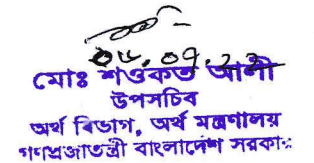 ০৮.০৭.২১
মোঃ শওকত আলী
উপসচিব
অর্থ বিভাগ, অর্থ মন্ত্রণালয়
গণপ্রজাতন্ত্রী বাংলাদেশ সরকার